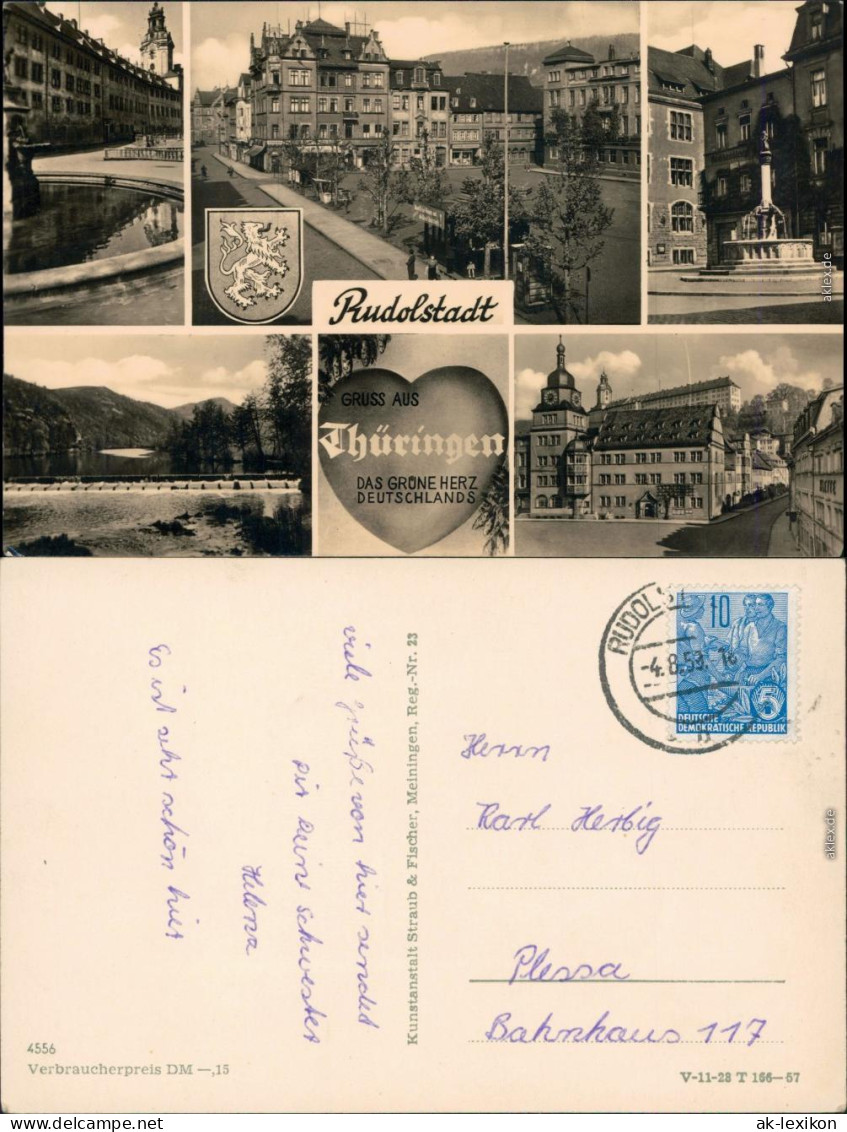 Rudolstadt
GRUSS AUS
Thüringen
DAS GRÜNE HERZ
DEUTSCHLANDS
aklex.de
viele grüße von hier sendet
dir deine schwester
Helena
Es ist sehr schön hier
Kunstanstalt Straub & Fischer, Meiningen, Reg.-Nr. 23
RUDOLST
-4.8.59.-16
10
5
DEUTSCHE
DEMOKRATISCHE REPUBLIK
Herrn
Karl Herbig
Plessa
Bahnhaus 117
aklex.de
4556
Verbraucherpreis DM —,15
V-11-28 T 166—57
ak-lexikon